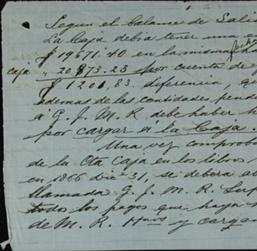 Segun el Balance de Sali
La Caja debia tener una e
$ 19671.40 en la misma
Caja " 20873.23 por cuenta de
$ 1201.83. diferencia,
ademas de las cantidades pend
a G. J. M. R. debe haber
por cargar a la Caja.
Una vez comprob
de la Cta Caja en los libros
en 1866 dic 31, se debera a
llamada G. J. M. R.
todos los pagos que haya
de M. R. Hnos y cargar